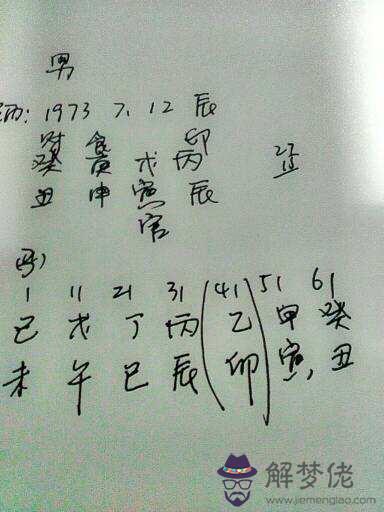 男
1973 7, 12 辰
财 食 印
癸 庚 戊 丙
丑 申 寅 辰
官
1 11 21 31 (41) 51 61
己 戊 丁 丙 乙 甲 癸
未 午 巳 辰 卯 寅, 丑
解梦佬
www.jiemenglao.com